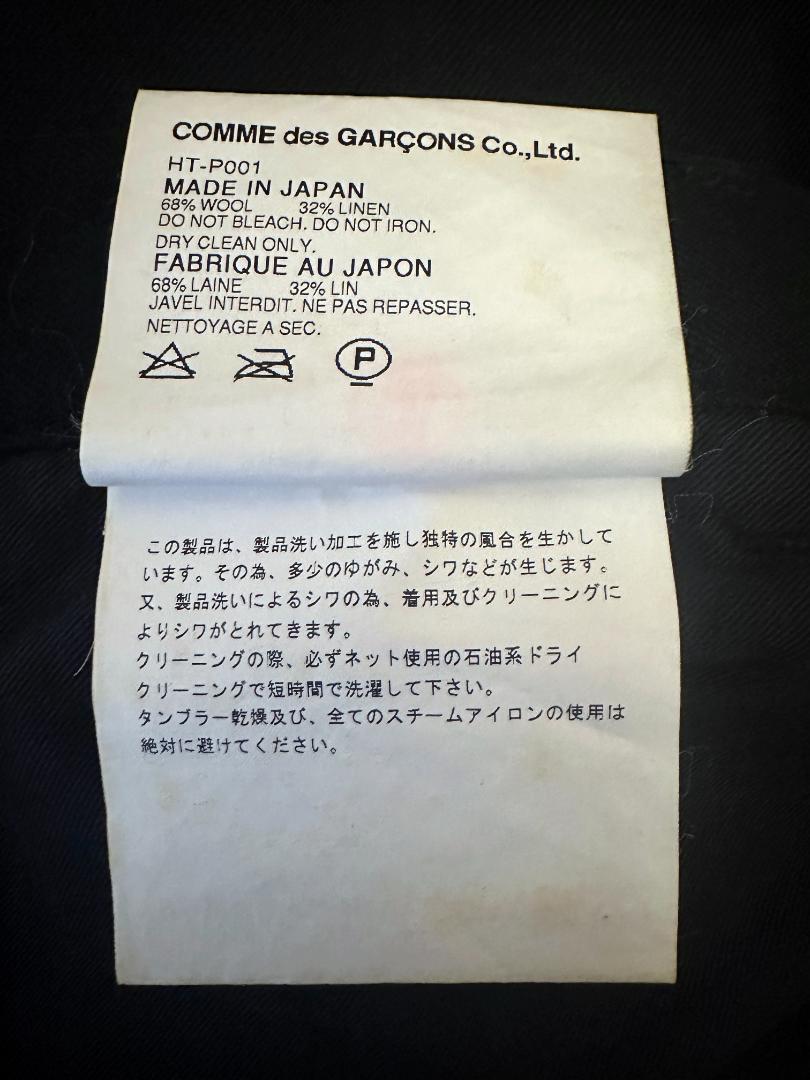 COMME des GARÇONS Co.,Ltd.
HT-P001
MADE IN JAPAN
68% WOOL 32% LINEN
DO NOT BLEACH. DO NOT IRON.
DRY CLEAN ONLY.
FABRIQUE AU JAPON
68% LAINE 32% LIN
JAVEL INTERDIT. NE PAS REPASSER.
NETTOYAGE A SEC.
P
この製品は、製品洗い加工を施し独特の風合を生かして
います。その為、多少のゆがみ、シワなどが生じます。
又、製品洗いによるシワの為、着用及びクリーニングに
よりシワがとれてきます。
クリーニングの際、必ずネット使用の石油系ドライ
クリーニングで短時間で洗濯して下さい。
タンブラー乾燥及び、全てのスチームアイロンの使用は
絶対に避けてください。